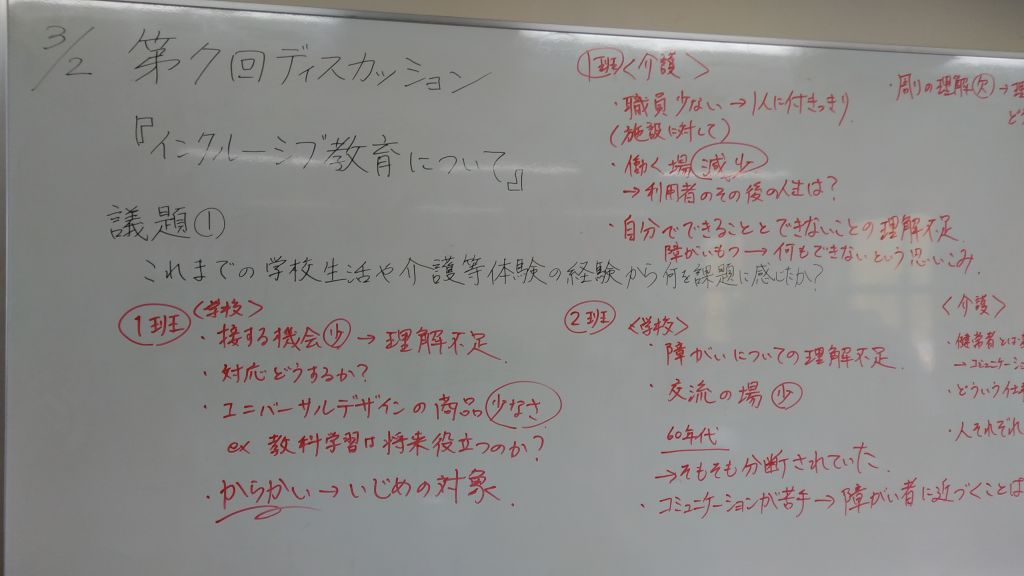 3/2 第7回ディスカッション
『インクルーシブ教育について』
議題①
これまでの学校生活や介護等体験の経験から何を課題に感じたか?
1班 <学校>
・接する機会少→理解不足
・対応どうするか?
・ユニバーサルデザインの商品少なさ
ex 教科学習は将来役立つのか?
・からかい→いじめの対象
1班<介護>
・職員少ない→1人に付きっきり
(施設に対して)
・働く場減少
→利用者のその後の人生は?
・自分でできることとできないことの理解不足
障がいもつ→何もできないという思いこみ
・周りの理解欠→理
ど
2班 <学校>
・障がいについての理解不足
・交流の場少
60年代
→そもそも分断されていた
・コミュニケーションが苦手→障がい者に近づくことは
<介護>
・健常者とは
→コミュニケーション
・どういう仕
・人それぞれ